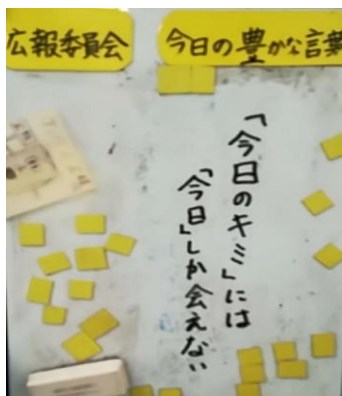 広報委員会
今日の豊かな言葉
「今日のキミ」には
「今日」しか会えない